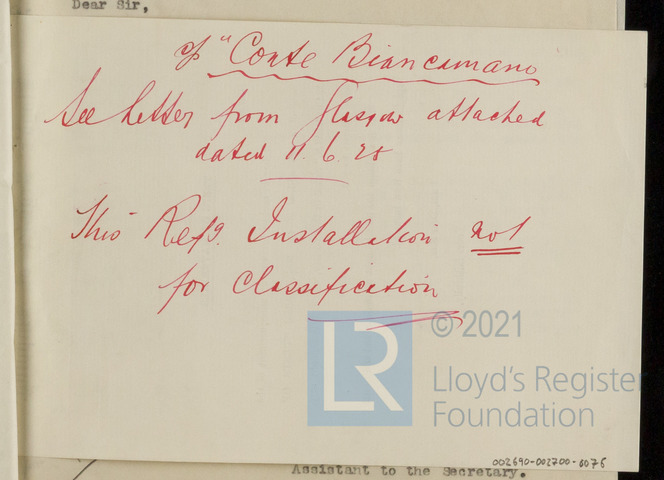 Dear Sir,
S/S "Conte Biancamano
See letter from Glasgow attached
dated 11.6.25
This Refg. Installation not
for Classification
© 2021
LR
Lloyd's Register
Foundation
002690-002700-0076
Assistant to the Secretary.